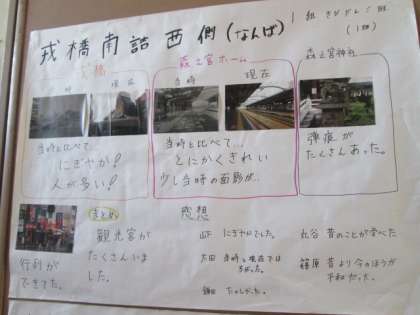 戎橋南詰西側(なんば)
1組 きたがしら班
(1班)
大橋
当時 現在
森之宮ホーム
当時 現在
森之宮神社
当時と比べて…
にぎやか!
人が多い!
当時と比べて…
とにかくきれい
少し当時の面影が…
弾痕が
たくさんあった。
行列が
できてた。
まとめ
観光客が
たくさんいま
した。
感想
山下 にぎやかでした。
太田 当時と現在では
ちがった。
鎌田 たのしかった。
丸谷 昔のことが学べた
篠原 昔より今のほうが
平和だった。